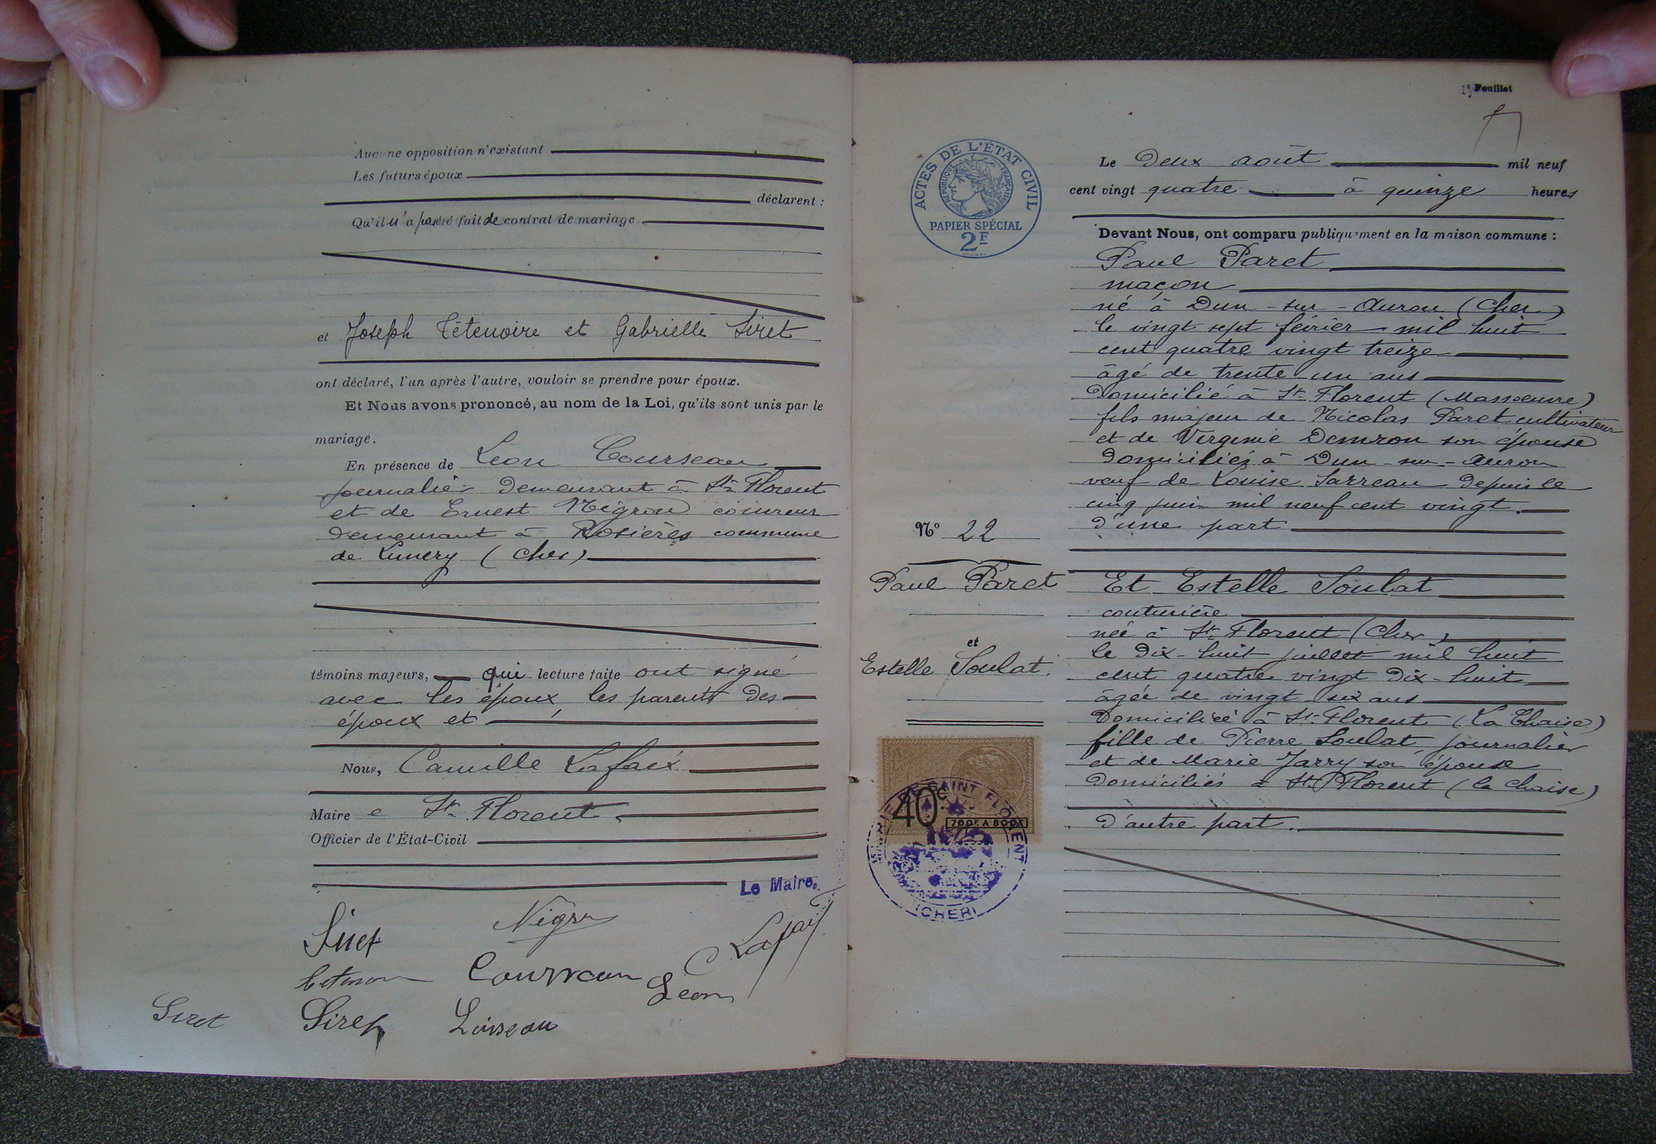 Aucune opposition n'existant
Les futurs époux
déclarent :
Qu'il n'a pas été fait de contrat de mariage
et Joseph Tétenoire et Gabrielle Siret
ont déclaré, l'un après l'autre, vouloir se prendre pour époux.
Et Nous avons prononcé, au nom de la Loi, qu'ils sont unis par le
mariage.
En présence de Léon Courseau
journalier demeurant à St Florent
et de Ernest Nigron couvreur
demeurant à Rosières commune
de Lunery (Cher)
témoins majeurs, qui lecture faite ont signé
avec les époux les parents des
époux et
Nous, Camille Lafaix
Maire e St Florent
Officier de l'État-Civil
Le Maire,
Siret
Nigron
Lafaix
Courseau
Léon
Siret
Siret
Loiseau
Feuillet
ACTES DE L'ÉTAT CIVIL
RÉPUBLIQUE FRANÇAISE
PAPIER SPÉCIAL
2F
Le Deux août mil neuf
cent vingt quatre à quinze heures
Devant Nous, ont comparu publiquement en la maison commune :
Paul Paret
maçon
né à Dun-sur-Auron (Cher)
le vingt sept février mil huit
cent quatre vingt treize
âgé de trente un ans
Domicilié à St Florent (Massoeuvre)
fils majeur de Nicolas Paret cultivateur
et de Virginie son épouse
domiciliés à Dun-sur-Auron
veuf de Louise Sarreau depuis le
cinq juin mil neuf cent vingt.
d'une part
N° 22
Paul Paret
et
Estelle Soulat.
Et Estelle Soulat
couturière
née à St Florent (Cher)
le Dix-huit juillet mil huit
cent quatre vingt dix-huit
âgée de vingt six ans
Domiciliée à St Florent (La Chaise)
fille de Pierre Soulat, journalier
et de Marie Jarry son épouse
Domiciliés à St Florent (la Chaise)
d'autre part.
40c
MAIRIE DE SAINT FLORENT
(CHER)